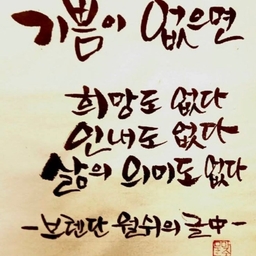 기쁨이 없으면
희망도 없다
인내도 없다
삶의 의미도 없다
-브렌단 월쉬의 글中-